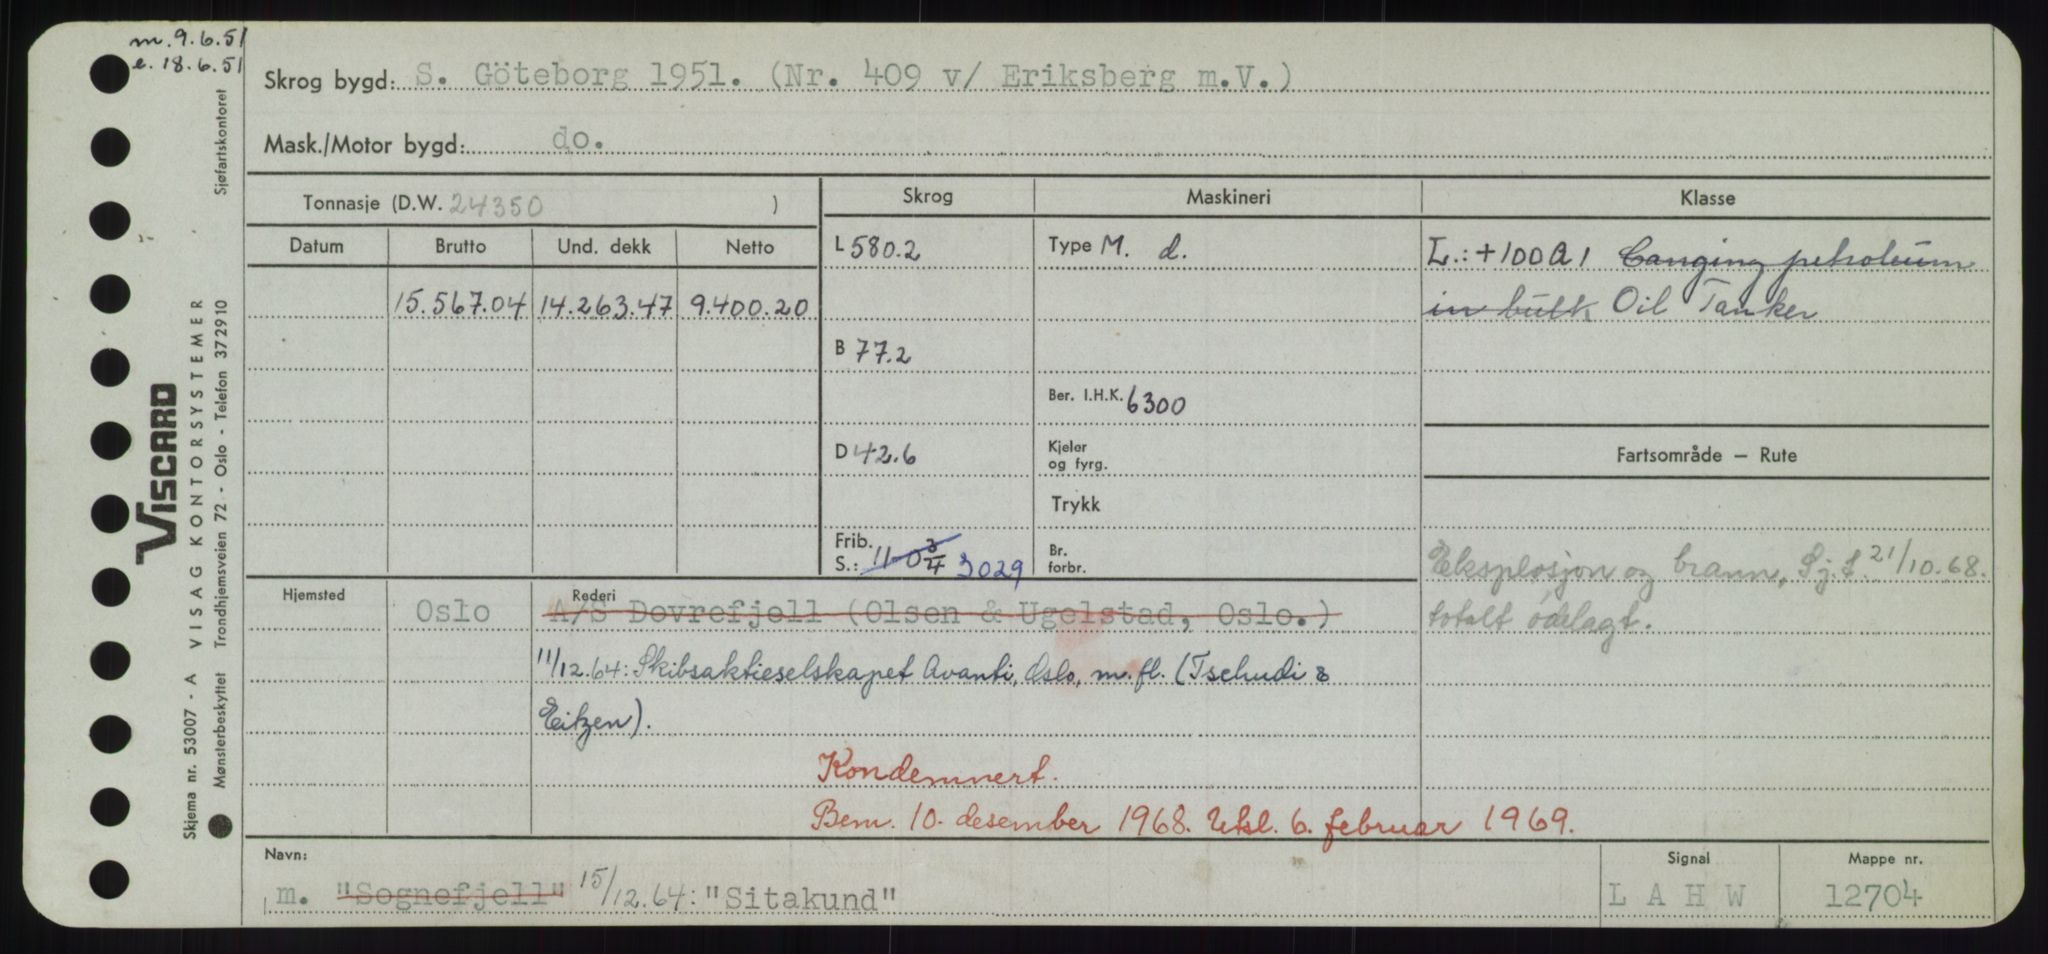 m. 9.6.51
e. 18.6.51
Skrog bygd: S. Göteborg 1951. (Nr. 409 v/ Eriksberg m.V.)
Mask./Motor bygd: do.
Tonnasje (D.W. 24350 )
Skrog Maskineri Klasse
Datum Brutto Und. dekk Netto
L 580.2 Type M. d. L.: +100A1 Carrying petroleum
15.567.04 14.263.47 9.400.20 in bulk Oil Tanker
B 77.2
Ber. I.H.K. 6300
D 42.6 Kjeler
og fyrg.
Fartsområde – Rute
Trykk
Frib.
S.: 11-0 3/4 3029
Br.
forbr.
Eksplosjon og brann, Sj.t. 21/10.68.
totalt ödelagt.
Hjemsted Oslo Rederi
A/S Dovrefjell (Olsen & Ugelstad, Oslo.)
11/12.64: Skibsaktieselskapet Avanti, Oslo, m.fl. (Tschudi &
Eitzen).
Kondemnert.
Bem. 10. desember 1968. Utsl. 6. februar 1969.
Navn:
m. "Sognefjell" 15/12.64: "Sitakund"
Signal
L A H W
Mappe nr.
12704
VISCARD
VISAG KONTORSYSTEMER
Sjøfartskontoret
Skjema nr. 53007 - A
Mønsterbeskyttet Trondhjemsveien 72 - Oslo - Telefon 372910